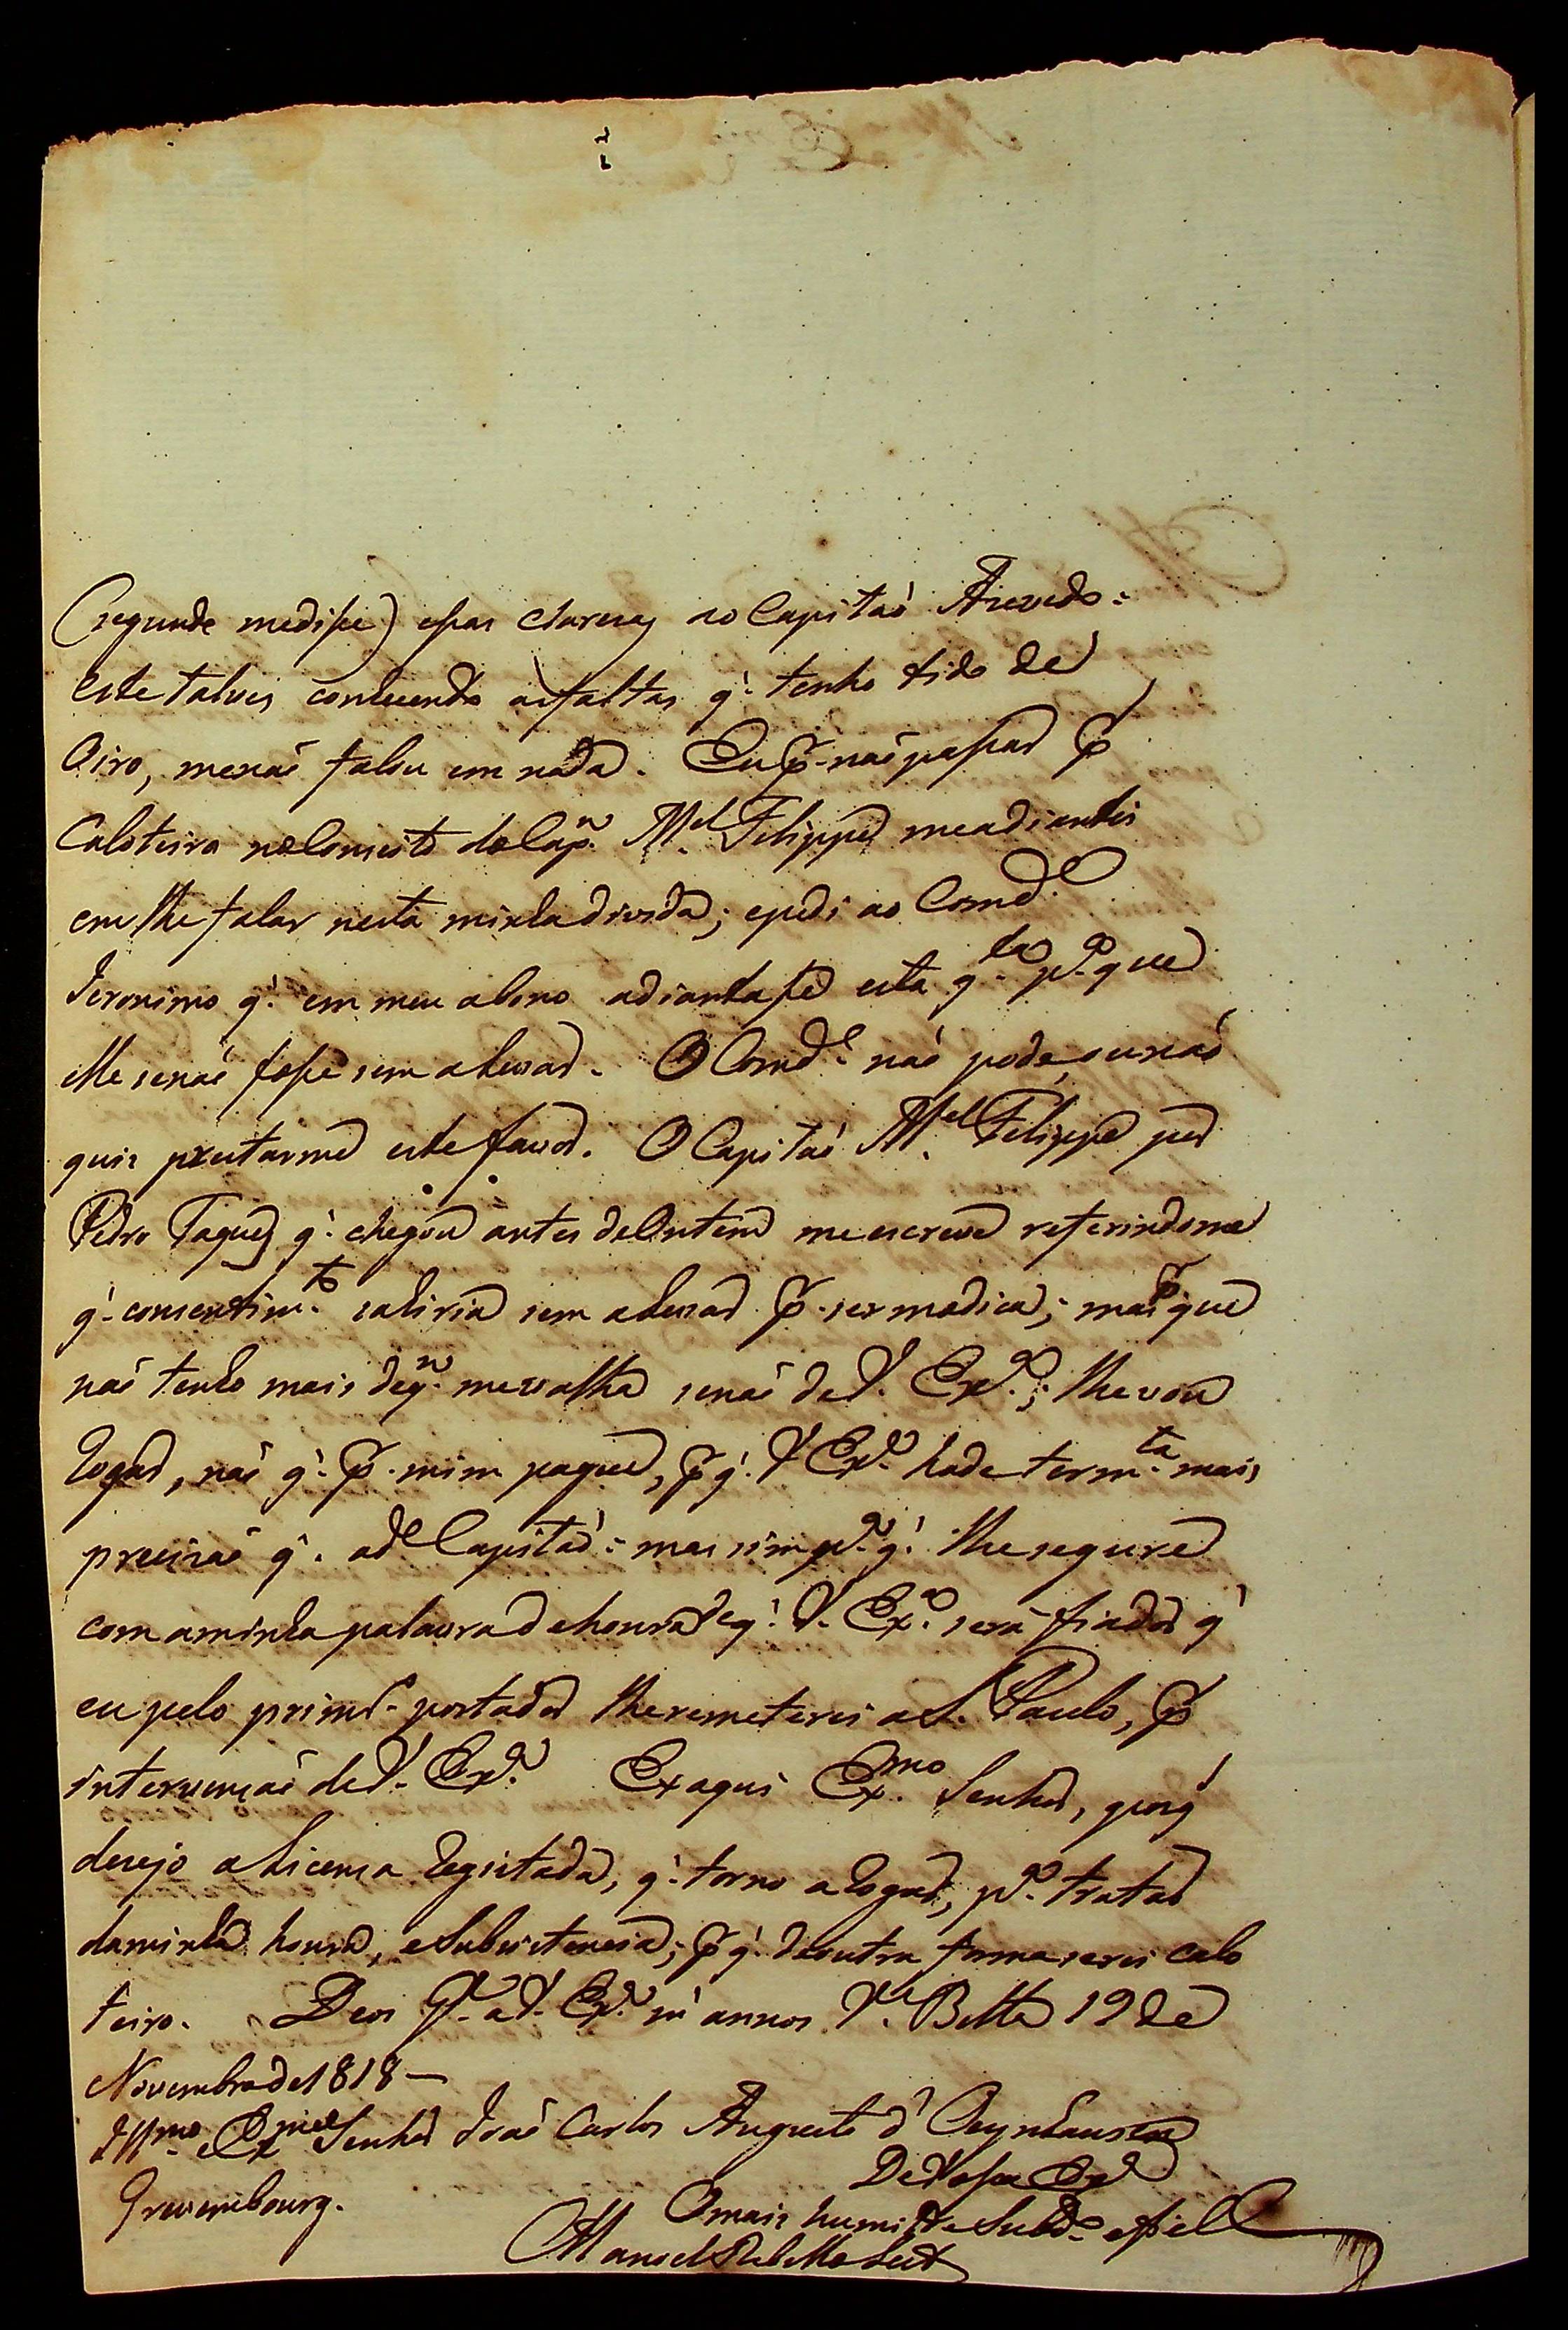 (segundo medisse) essas clarezas ao Capitaõ Azevedo:
este talves conhecendo asfaltas q̃ tenho tido de
Oiro, menaõ falou em nada. Eu p.ʳ naõpassar p.ʳ
Caloteiro noConceito doCap.ᵐ M.ᵉˡ Felippe meadiantei
em lhefalar nesta minhadivida; epedi ao Comd.ᵉ
Jeronimo q̃ em meu abono adiantasse esta q.ᵗⁱᵃ p.ᵃ que
elle senaõ fosse sem alevar. O Comd.ᵉ naõ pode, ounaõ
quis prestarme este favor. O Capitaõ M.ᵉˡ Felippe por
Pedro Taques q̃ chegou antes deOntem me escreve referindome
q̃ consentim.ᵗᵒ sahiria sem alevar p.ʳ ser modica; mas p.ʳ que
naõ tenho mais deq.ᵐ mevalha senaõ deV. Ex.ᵃ; lhe vou
Rogar, naõ q̃ p.ʳ mim pague, p.ʳ q̃ V Ex.ᵃ hade ter m.ᵗᵃ mais
precisaõ q̃ od.º Capitaõ: mas sim p.ᵃ q̃ lhesegure
com aminha palavra dehonra eq̃ V. Ex.ᵃ será fiador q̃
eu pelo prim.º portador lheremeterei aS. Paulo, p.ʳ
intervençaõ deV. Ex.ᵃ Ex aqui Ex.ᵐᵒ Senhor, porq̃
desejo aLicença Registada, q̃ torno aRogar, p.ᵃ tratar
daminha honra, eSubsistencia; p.ʳ q̃ deoutra forma serei calo
teiro. Deos G.ᵉ aV. Ex.ᵃ m.ˢ annos V.ᵃ Bella 19 de
Novembro de1818—
Ill.ᵐᵒ eEx.ᵐᵒ Senhor Joaõ Carlos Augusto d'Oeynhausen
Grevembourg.
DeVossa Ex.ᵃ
Omais humilde Subd.º efiel
Manoel Rebello Leite